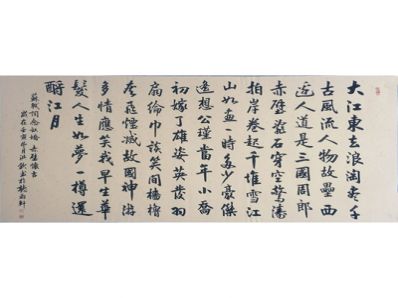 大江東去浪淘盡千
古風流人物故壘西
邊人道是三國周郎
赤壁亂石穿空驚濤
拍岸卷起千堆雪江
山如畫一時多少豪傑
遙想公瑾當年小喬
初嫁了雄姿英發羽
扇綸巾談笑間檣櫓
灰飛煙滅故國神游
多情應笑我早生華
髮人生如夢一樽還
酹江月
蘇軾詞念奴嬌赤壁懷古
歲在壬寅